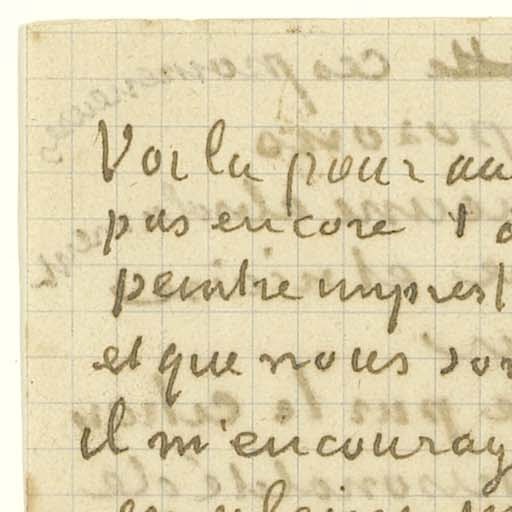 Voila pour au
pas encore
peintre impres
et que nous son
il m'encourag
en plein